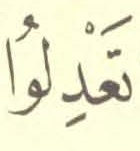 تَعْدِلُوا